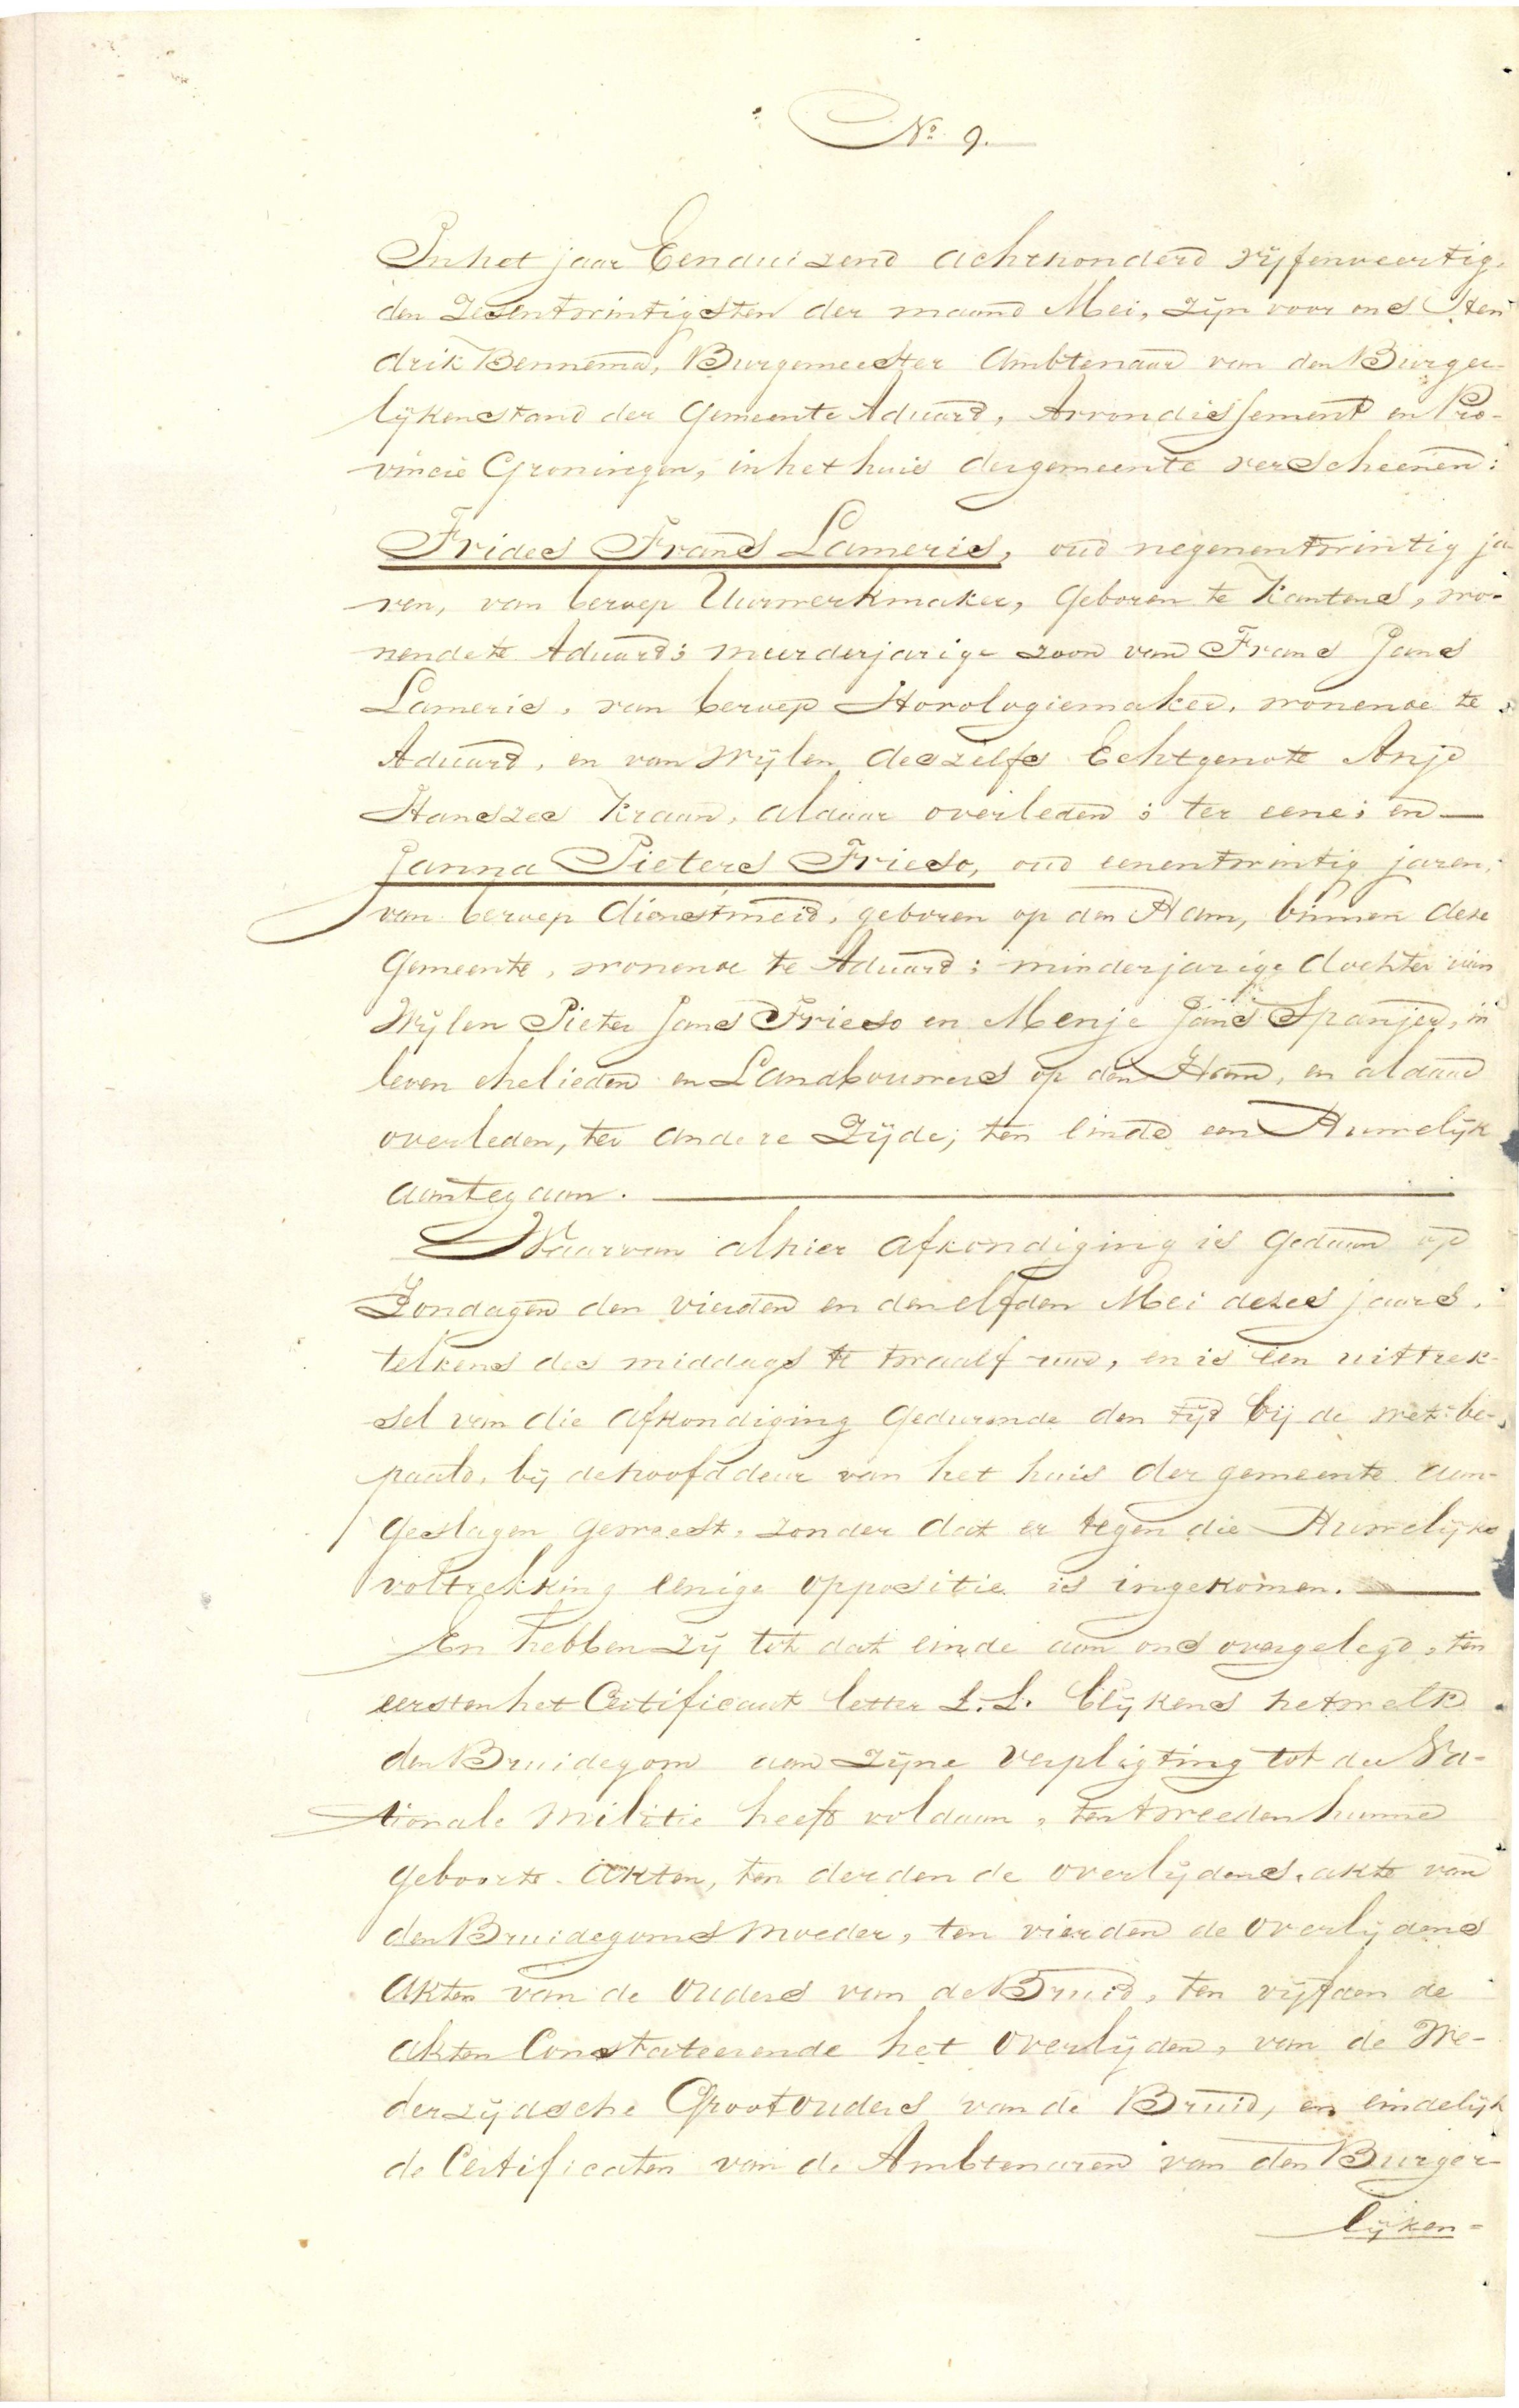 No 9.
In het jaar Eenduizend achthonderd vijfenveertig,
den Zesentwintigsten der maand Mei, zijn voor ons Hen
drik Bennema, Burgemeester Ambtenaar van den Burger-
lijkenstand der Gemeente Aduard, Arrondissement en Pro-
vincie Groningen, in het huis der gemeente verscheenen:
Frides Frans Lameris, oud negenentwintig ja
ren, van beroep Uurwerkmaker, geboren te Kantens, wo-
nende te Aduard; meerderjarige zoon van Frans Jans
Lameris, van beroep Horologiemaker, wonende te
Aduard, en van Wijlen deszelfs Echtgenote Anje
Hanszes Kraan, aldaar overleden; ter eene; en
Janna Pieters Frieso, oud eenentwintig jaren,
van beroep dienstmeid, geboren op den Ham, binnen deze
Gemeente, wonende te Aduard; minderjarige dochter van
Wijlen Pieter Jans Frieso en Menje Jans Spanjer, in
leven ehelieden en Landbouwers op den Ham, en aldaar
overleden, ter andere Zijde; ten einde een Huwelijk
aantegaan.
Waarvan alhier afkondiging is gedaan op
Zondagen den vierden en den elfden Mei dezes jaars,
telkens des middags te twaalf uur, en is een uittrek-
sel van die afkondiging gedurende den tijd bij de wet be-
paald, bij de hoofddeur van het huis der gemeente aan-
geslagen geweest, zonder dat er tegen die Huwelijks
voltrekking eenige oppositie is ingekomen.
En hebben zij tot dat einde aan ons overgelegd, ten
eersten het Certificaat letter L.L. blijkens hetwelk
den Bruidegom aan zijne verpligting tot de Na-
tionale Militie heeft voldaan, ten tweeden hunne
geboorte-akten, ten derden de overlijdens-akte van
den Bruidegoms Moeder, ten vierden de overlijdens
akten van de Ouders van de Bruid, ten vijfden de
akten Constateerende het overlijden, van de We-
derzijdsche Grootouders van de Bruid, en eindelijk
de Certificaten van de Ambtenaren van den Burger-
lijken-